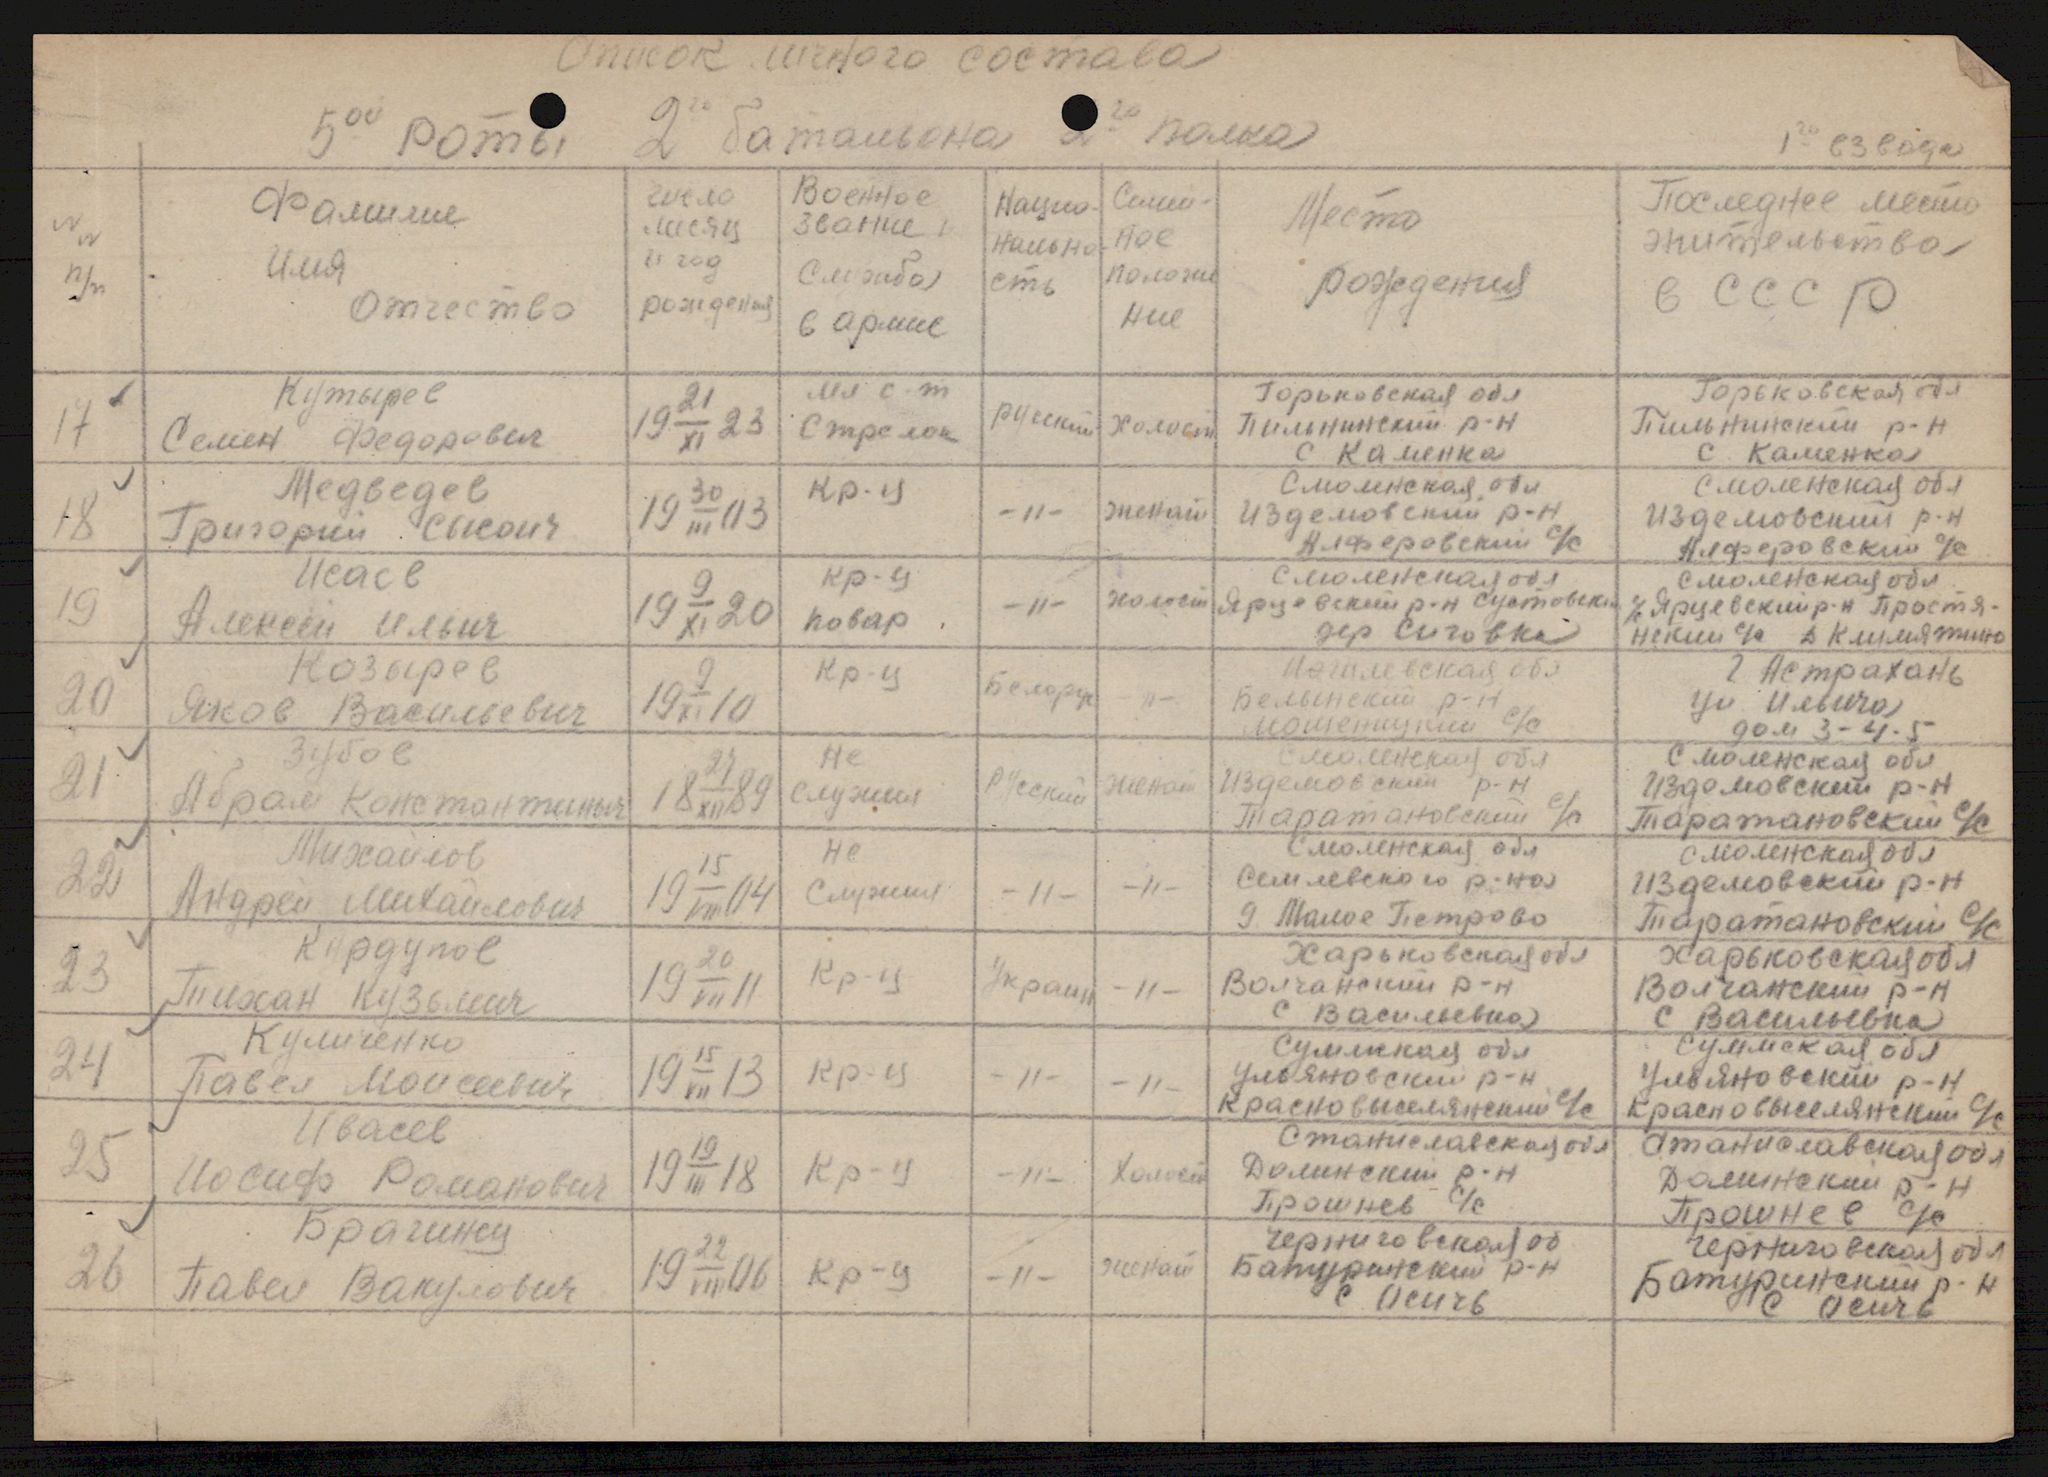 Список личного состава
5ой роты 2го батальона 2го полка 1го взвода
NN п/п
Фамилие Имя Отчество
число месяц и год рождения
Военное звание и Служба в армие
Нацио-нально-сть
Семей-ное положе ние
Место рождения
Последнее место жительства в СССР
17 Кутырев Семен Федорович
19 21/XI 23
мл с-т Стрелок
русский
холост
Горьковская обл Пильнинский р-н с Каменка
Горьковская обл Пильнинский р-н с Каменка
18 Медведев Григорий Сысоич
19 30/III 03
Кр-ц
-"-
женат
Смоленская обл Издемовский р-н Алферовский с/с
Смоленская обл Издемовский р-н Алферовский с/с
19 Исаев Алексей Ильич
19 9/XI 20
Кр-ц повар
-"-
холост
Смоленская обл Ярцевский р-н Сустовский с/с дер Сиговка
Смоленская обл Ярцевский р-н Простя-нский с/с д Климятино
20 Козырев Яков Васильевич
19 9/XI 10
Кр-ц
Белорус
-"-
Могилевская обл Белынский р-н Мошеницкий с/с
г Астрахань ул Ильича дом 3-4-5
21 Зубов Абрам Константиныч
18 27/XII 89
Не служил
Русский
женат
Смоленская обл Издемовский р-н Таратановский с/с
Смоленская обл Издемовский р-н Таратановский с/с
22 Михайлов Андрей Михайлович
19 15/VIII 04
Не служил
-"-
-"-
Смоленская обл Семлевского р-на д. Малое Петрово
Смоленская обл Издемовский р-н Таратановский с/с
23 Кирдупов Тихан Кузьмич
19 20/VII 11
Кр-ц
Украин
-"-
Харьковская обл Волчанский р-н с Васильевка
Харьковская обл Волчанский р-н с Васильевка
24 Куличенко Павел Моисеевич
19 15/VII 13
Кр-ц
-"-
-"-
Суммская обл Ульяновский р-н Красновыселянский с/с
Суммская обл Ульяновский р-н Красновыселянский с/с
25 Ивасев Иосиф Романович
19 19/III 18
Кр-ц
-"-
Холост
Станиславская обл Долинский р-н Прошнев с/с
Станиславская обл Долинский р-н Прошнев с/с
26 Брагинец Павел Вакулович
19 22/VIII 06
Кр-ц
-"-
женат
Черниговская об Батуринский р-н с Осичь
Черниговская обл Батуринский р-н с Осичь